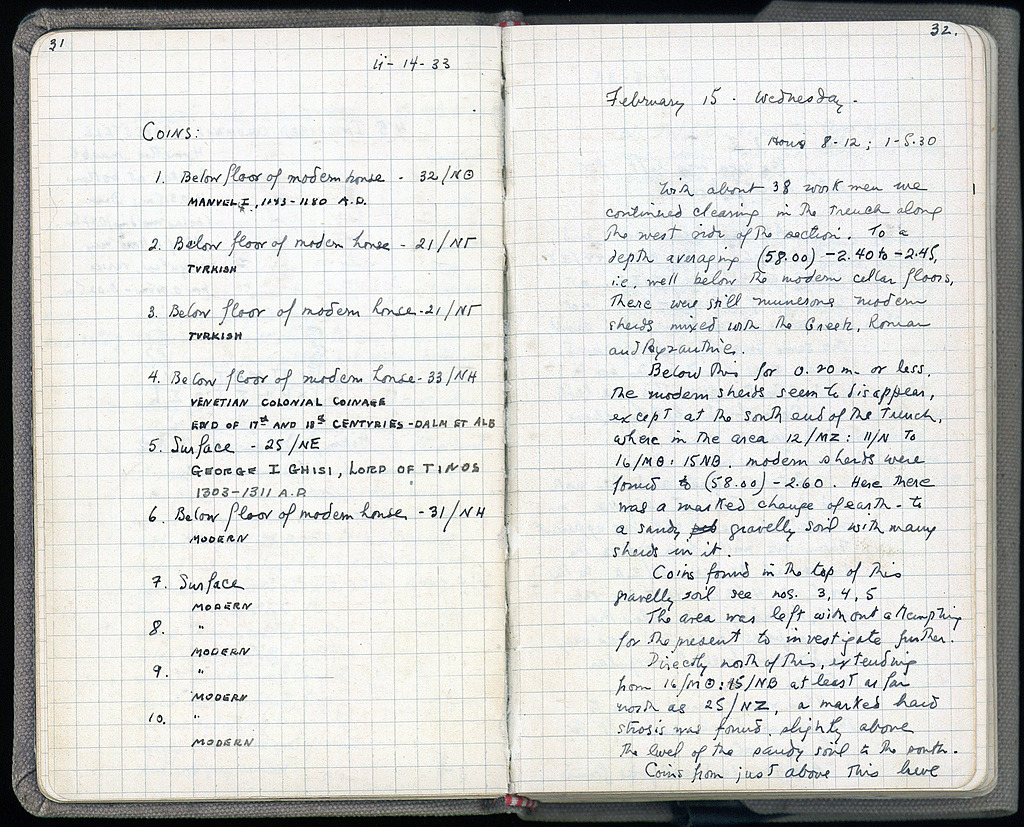 31
ii-14-33
COINS:
1. Below floor of modern house - 32/NΘ
MANUEL I, 1143-1180 A.D.
2. Below floor of modern house - 21/NΓ
TURKISH
3. Below floor of modern house - 21/NΓ
TURKISH
4. Below floor of modern house - 33/NH
VENETIAN COLONIAL COINAGE
END OF 17th AND 18th CENTURIES - DALM ET ALB
5. Surface - 25/NE
GEORGE I GHISI, LORD OF TINOS
1303-1311 A.D.
6. Below floor of modern house - 31/NH
MODERN
7. Surface
MODERN
8. "
MODERN
9. "
MODERN
10. "
MODERN
32.
February 15. Wednesday.
Hours 8-12; 1-5.30
With about 38 workmen we
continued clearing in the trench along
the west side of the section. To a
depth averaging (58.00) -2.40 to -2.45,
i.e. well below the modern cellar floors,
there were still numerous modern
sherds mixed with the Greek, Roman
and Byzantine.
Below this for 0.20 m. or less,
the modern sherds seem to disappear,
except at the south end of the trench,
where in the area 12/MZ: 11/N to
16/MΘ: 15NB, modern sherds were
found to (58.00) - 2.60. Here there
was a marked change of earth - to
a sandy gravelly soil with many
sherds in it.
Coins found in the top of this
gravelly soil see nos. 3, 4, 5
The area was left without attempting
for the present to investigate further.
Directly north of this, extending
from 16/MΘ: 15/NB at least as far
north as 25/NZ, a marked hard
strosis was found, slightly above
the level of the sandy soil to the south.
Coins from just above this here